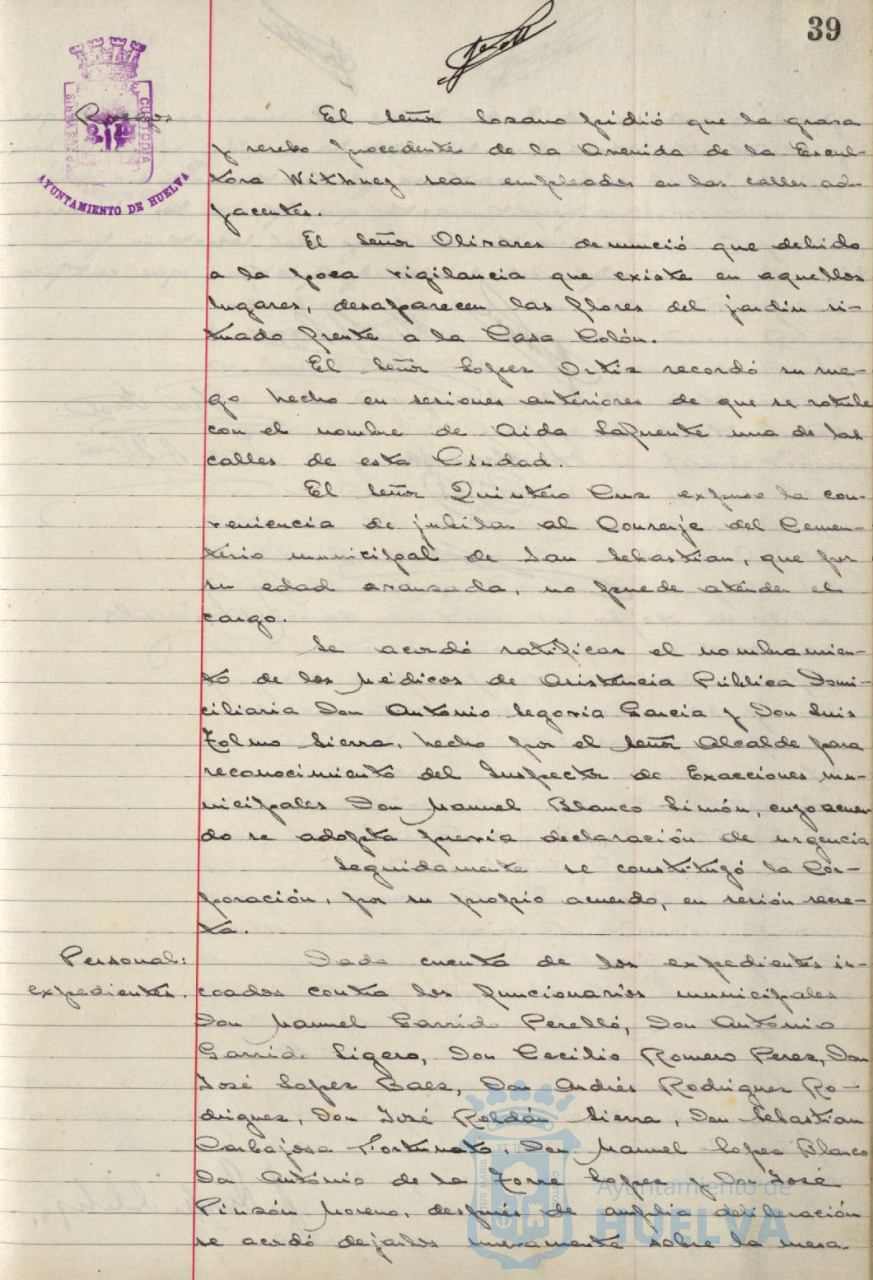 39
Ruegos
El señor Lozano pidió que la grava
y recebo procedente de la Avenida de la Escul-
tora Withney sean empleados en las calles ad-
yacentes.
El señor Olivares denunció que debido
a la poca vigilancia que existe en aquellos
lugares, desaparecen las flores del jardín si-
tuado frente a la Casa Colón.
El señor Lopez Ortiz recordó su rue-
go hecho en sesiones anteriores de que se rotule
con el nombre de Aida Lafuente una de las
calles de esta Ciudad.
El señor Quintero Cruz expuso la con-
veniencia de jubilar al Conserje del Cemen-
terio municipal de San Sebastian, que por
su edad avanzada, no puede atender el
cargo.
Se acordó ratificar el nombramien-
to de los Médicos de Asistencia Pública Domi-
ciliaria Don Antonio Segovia Garcia y Don Luis
Tolmo Sierra, hecho por el señor Alcalde para
reconocimiento del Inspector de Exacciones mu-
nicipales Don Manuel Blanco Simón, cuyo acuer-
do se adopta previa declaración de urgencia
Seguidamente se constituyó la Cor-
poración, por su propio acuerdo, en sesión secre-
ta.
Personal:
expedientes.
Dada cuenta de los expedientes in-
coados contra los funcionarios municipales
Don Manuel Garrido Perelló, Don Antonio
Garrido Ligero, Don Cecilio Romero Perez, Don
José Lopez Baez, Don Andrés Rodriguez Ro-
driguez, Don José Roldán Sierra, Don Sebastian
Carbajosa Fortunato, Don Manuel Lopez Blanco
Don Antonio de la Torre Lopez y Don José
Pinzón Moreno, después de amplia deliberación
se acordó dejarlos nuevamente sobre la mesa.
CUSTODIA
AYUNTAMIENTO DE HUELVA
Ayuntamiento de
HUELVA